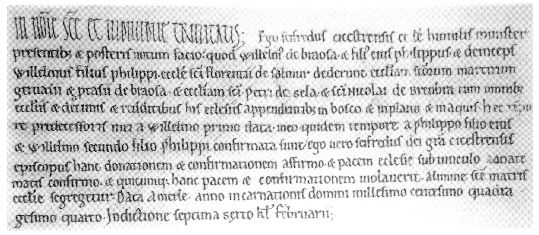 IN NOMINE SCE ET INDIVIDUE TRINITATIS; Ego sefredus cicestrensis ec̄ctē humilis minister
presentib; & posteris notum facio: quod Willelm' de braosa. & fili' eius philippus & deinceps
Willelmus filius philippi. eccl̄e sc̄i florentii de salmur dederunt eccl̄iam sc̄orum martirum
geruasii & prasii de braosa. & eccl̄iam sc̄i petri de sela. & sc̄i nicolai de brembria cum omnib;
eccl̄iis & decimis & redditibus his eccl̄esiis appendentib; in bosco & in plano & in aquis. hec
predecessoris mei a Willelmo primo data. meo quidem tempore a philippo filio eius
& Willelmo secundo filio philippi confirmata sunt. ego uero sefredus dei gr̄a cicestrensis
episcopus hanc donationem & confirmationem affirmo. & pacem eccl̄esie sub uinculo
confirmo. & quicumq; hanc pacem & confirmationem uiolauerit. a limine sc̄e matris
eccl̄ie segregetur. Data anno incarnationis domini millesimo centesimo quadra
gesimo quarto. Indictione septima sexto kl' februarii;